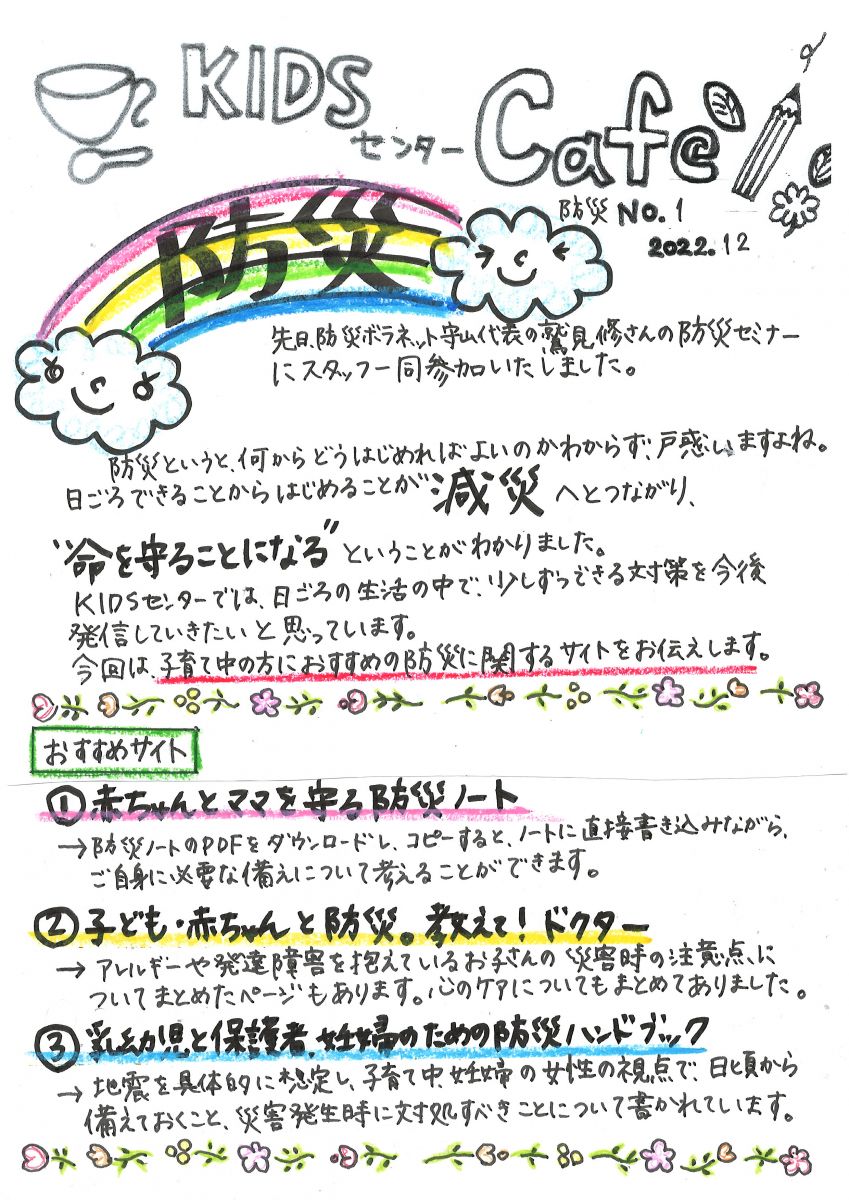 KIDS
センター Cafe
防災 NO.1
2022.12
防災
先日、防災ボラネット守山代表の鷲見修さんの防災セミナー
にスタッフ一同参加いたしました。
防災というと、何からどうはじめればよいのかわからず、戸惑いますよね。
日ごろできることからはじめることが減災へとつながり、
"命を守ることになる"ということがわかりました。
KIDSセンターでは、日ごろの生活の中で、少しずつできる対策を今後
発信していきたいと思っています。
今回は、子育て中の方におすすめの防災に関するサイトをお伝えします。
おすすめサイト
①赤ちゃんとママを守る防災ノート
→防災ノートのPDFをダウンロードし、コピーすると、ノートに直接書き込みながら、
ご自身に必要な備えについて考えることができます。
②子ども・赤ちゃんと防災。教えて!ドクター
→アレルギーや発達障害を抱えているお子さんの災害時の注意点、に
ついてまとめたページもあります。心のケアについてもまとめてありました。
③乳幼児と保護者、妊婦のための防災ハンドブック
→地震を具体的に想定し、子育て中、妊婦の女性の視点で、日頃から
備えておくこと、災害発生時に対処すべきことについて書かれています。